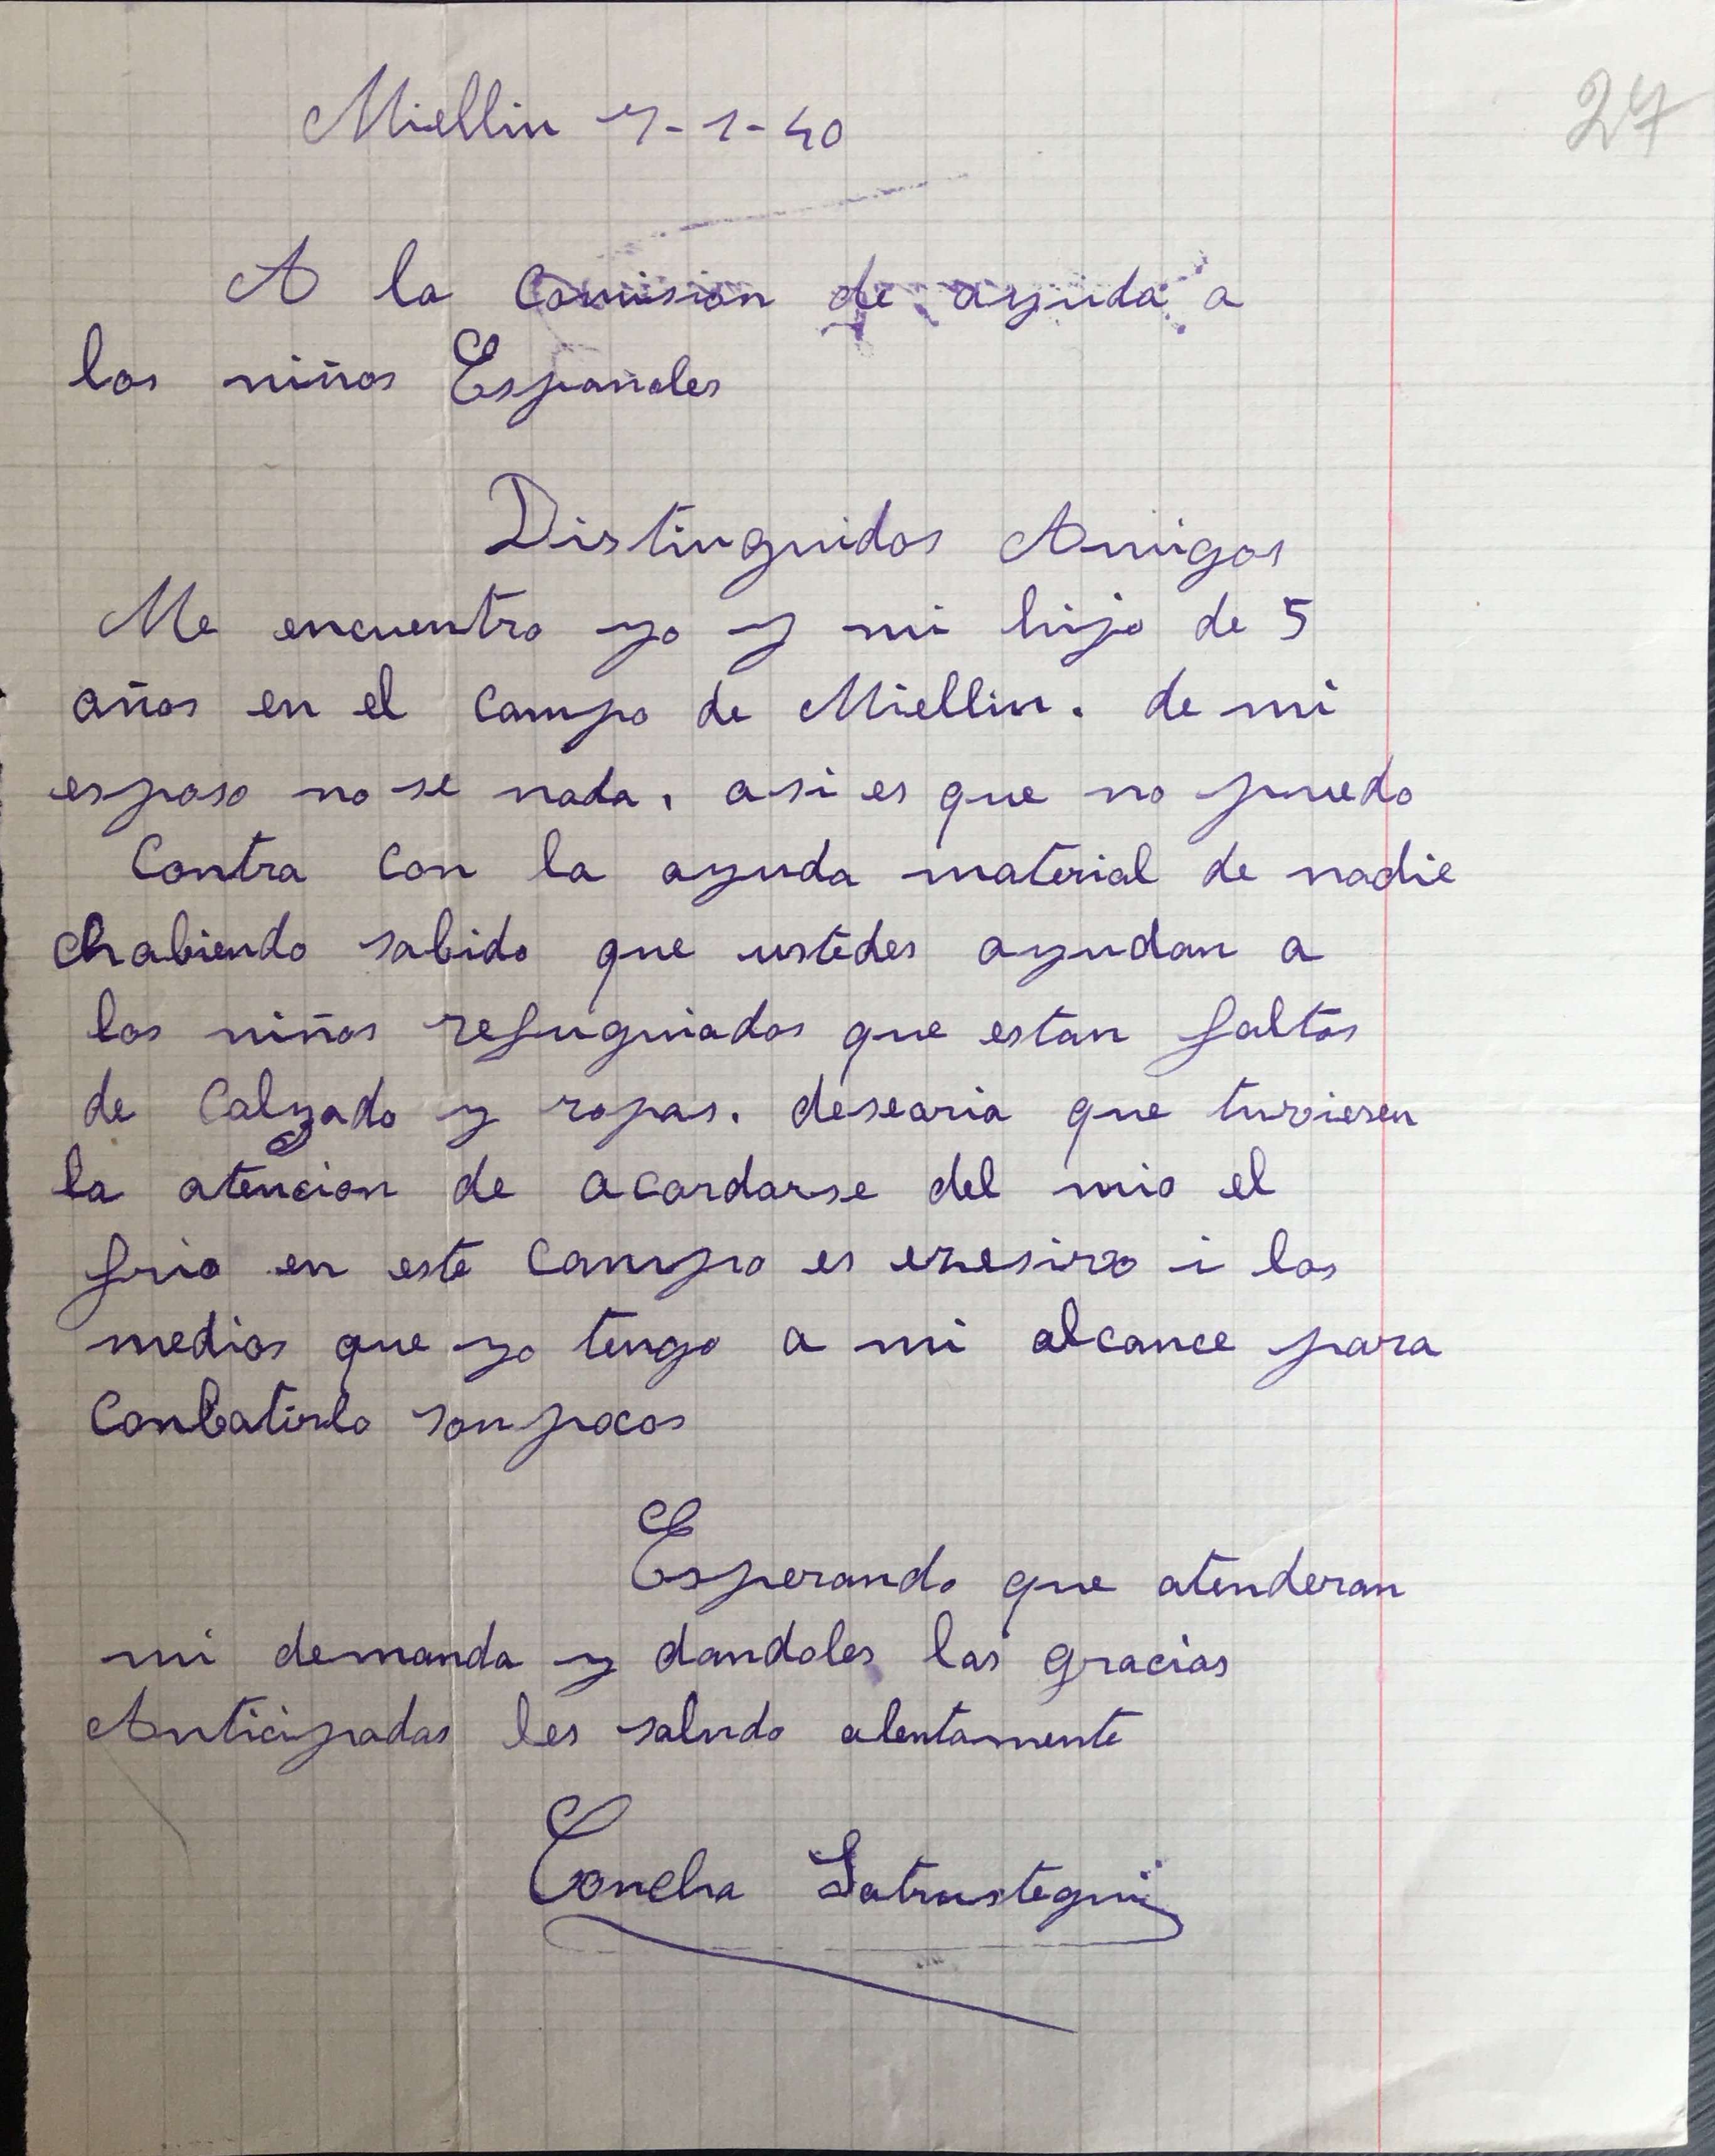 27
Miellin 7-1-40
A la Comision de ayuda a
los niños Españoles
Distinguidos Amigos
Me encuentro yo y mi hijo de 5
años en el campo de Miellin. de mi
esposo no se nada, asi es que no puedo
Contra con la ayuda material de nadie
habiendo sabido que ustedes ayudan a
los niños refuguiados que estan faltos
de Calzado y ropas. desearia que tuviesen
la atencion de acordarse del mio el
frio en este campo es exesivo i los
medios que yo tengo a mi alcance para
Conbatirlo son pocos
Esperando que atenderan
mi demanda y dandoles las gracias
Anticipadas les saludo atentamente
Concha Satrustegui